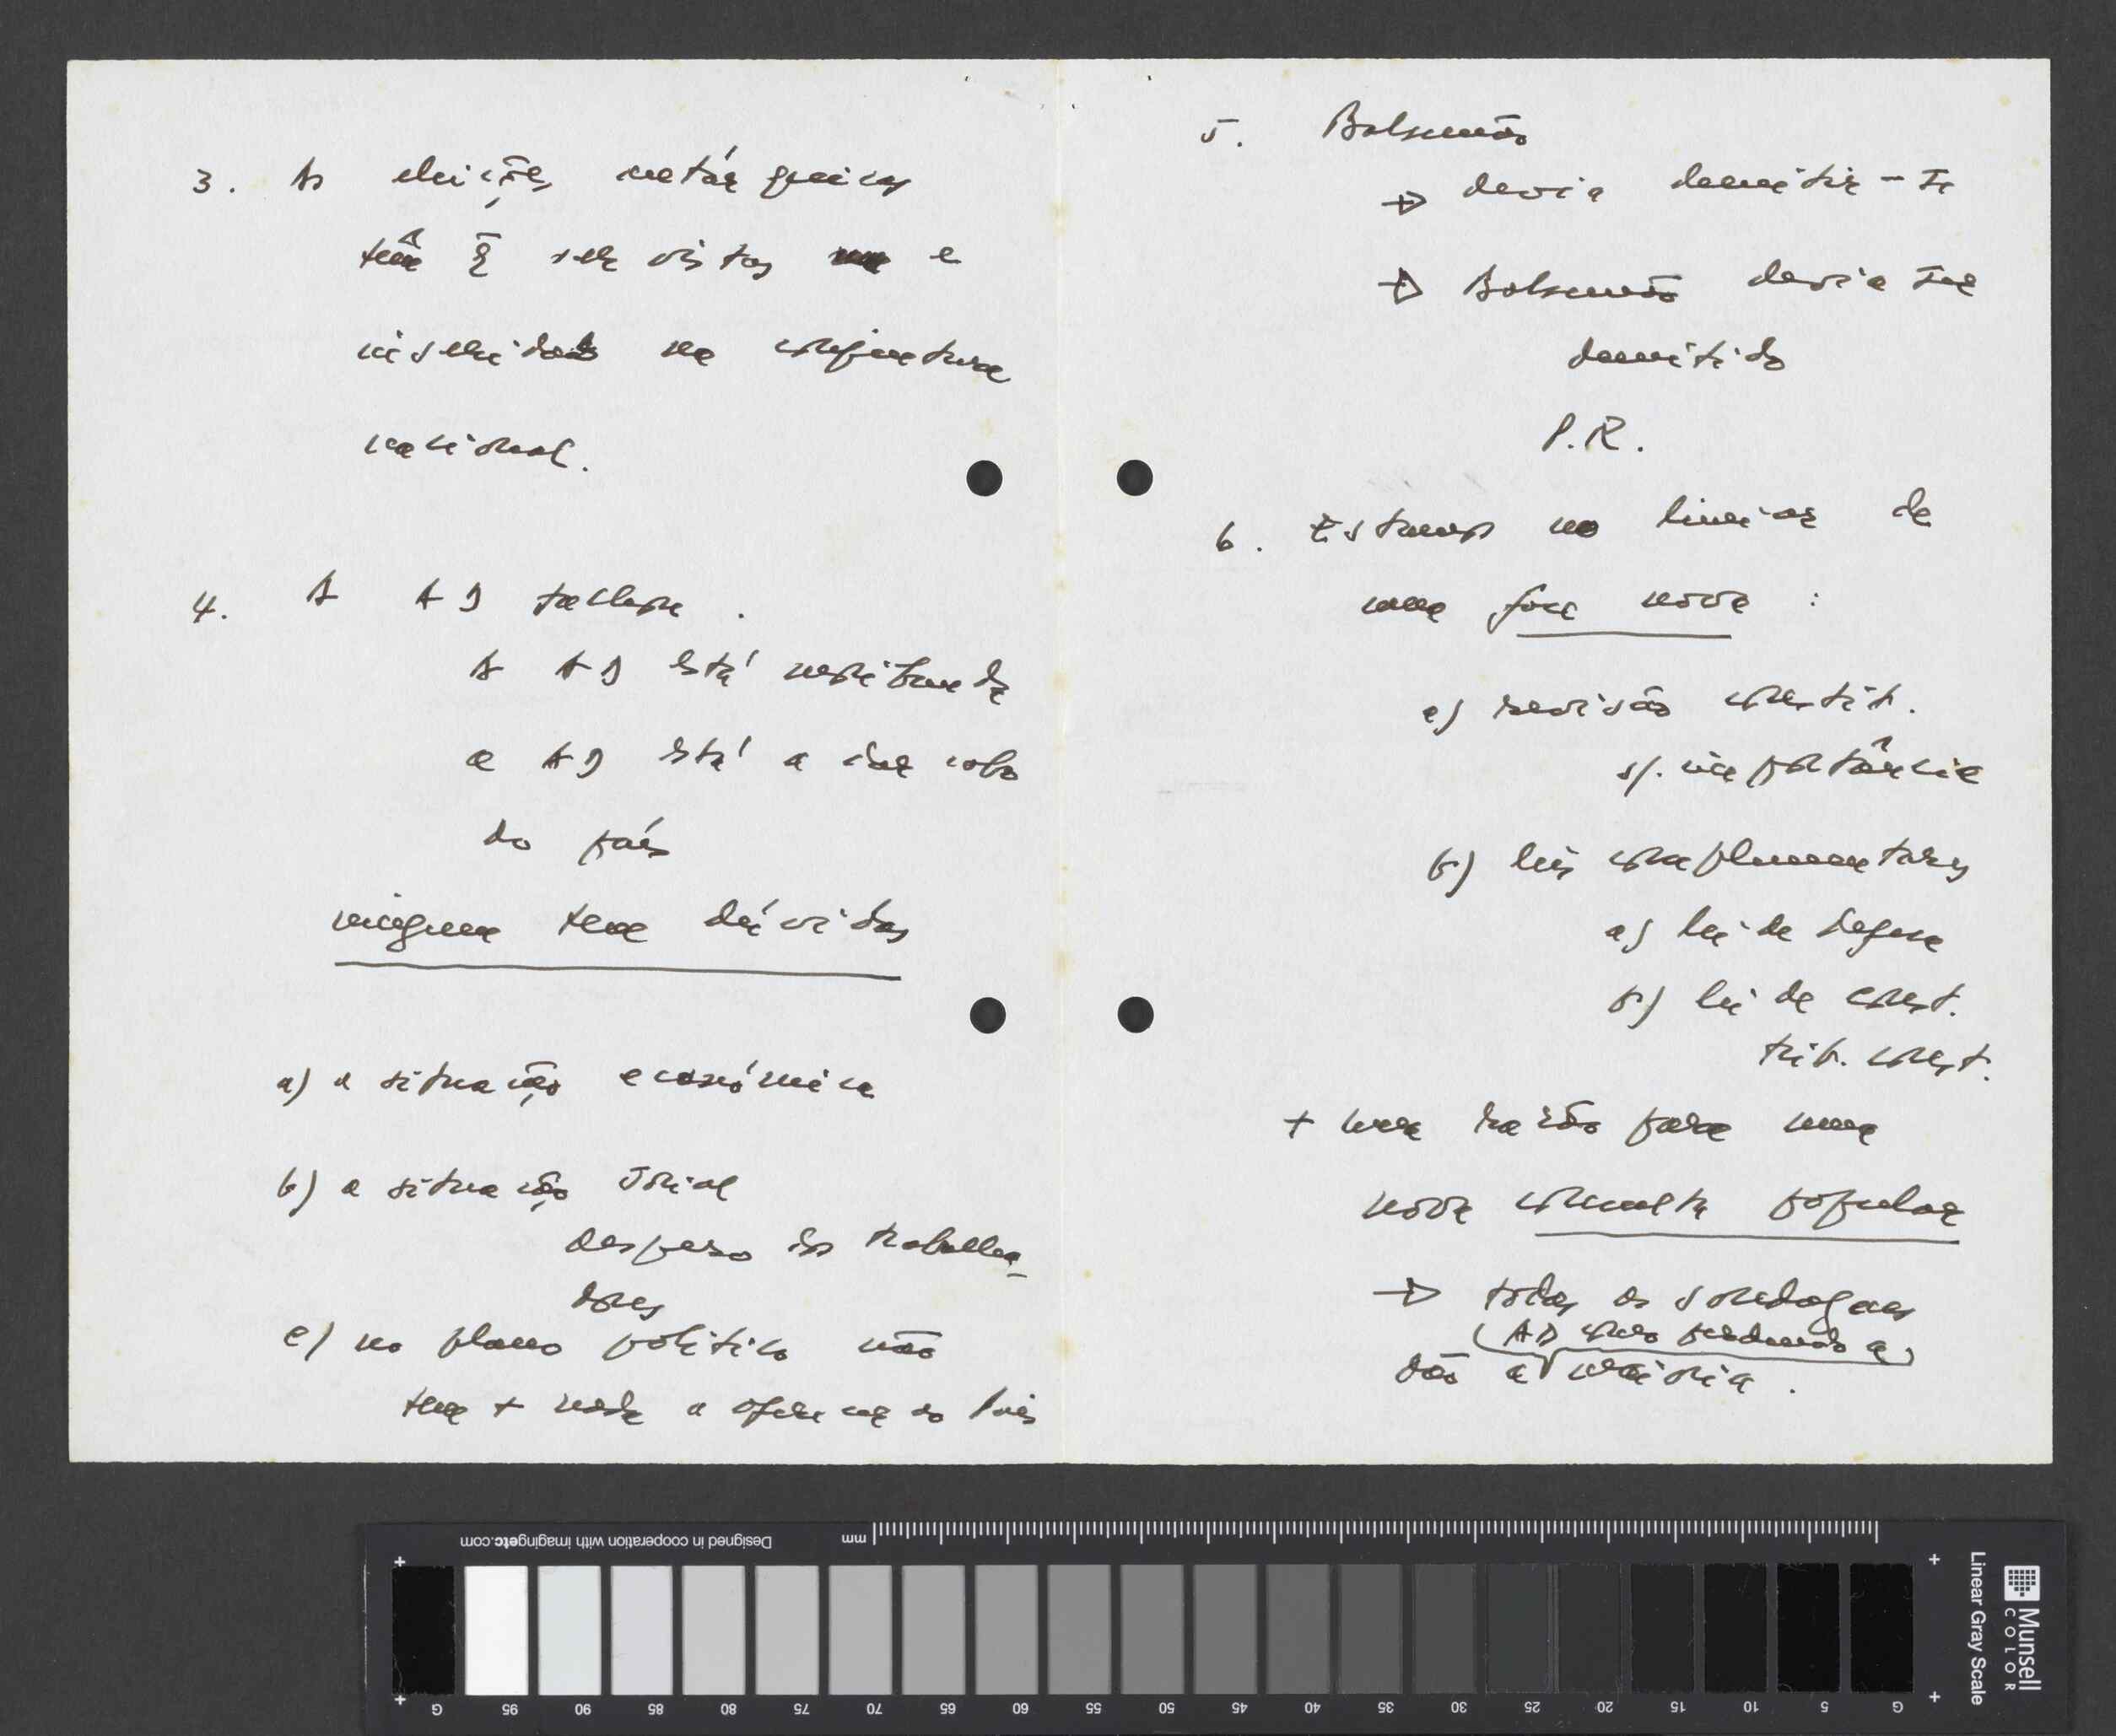 3. As eleições autárquicas
têm q̃ ser vistas e
inseridas na conjuntura
nacional.
4. A AD falhou.
A AD está moribunda
a AD está a dar cabo
do país
ninguem tem dúvidas
a) a situação económica
b) a situação social
desespero dos trabalha-
dores
c) no plano politico não
tem + nada a oferecer ao País
5. Balsemão
→ devia demitir-se
→ Balsemão devia ser
demitido
P.R.
6. Estamos no limiar de
uma fase nova :
a) revisão constit.
s/. importância
b) leis complementares
a) lei de defesa
b) lei de const.
trib. const.
+ uma razão para uma
nova consulta popular
→ todas as sondagens
(AD perdendo a)
dão a maioria.
Designed in cooperation with imagingetc.com
mm
Munsell
COLOR
Linear Gray Scale
G 95 90 85 80 75 70 65 60 55 50 45 40 35 30 25 20 15 10 5 G